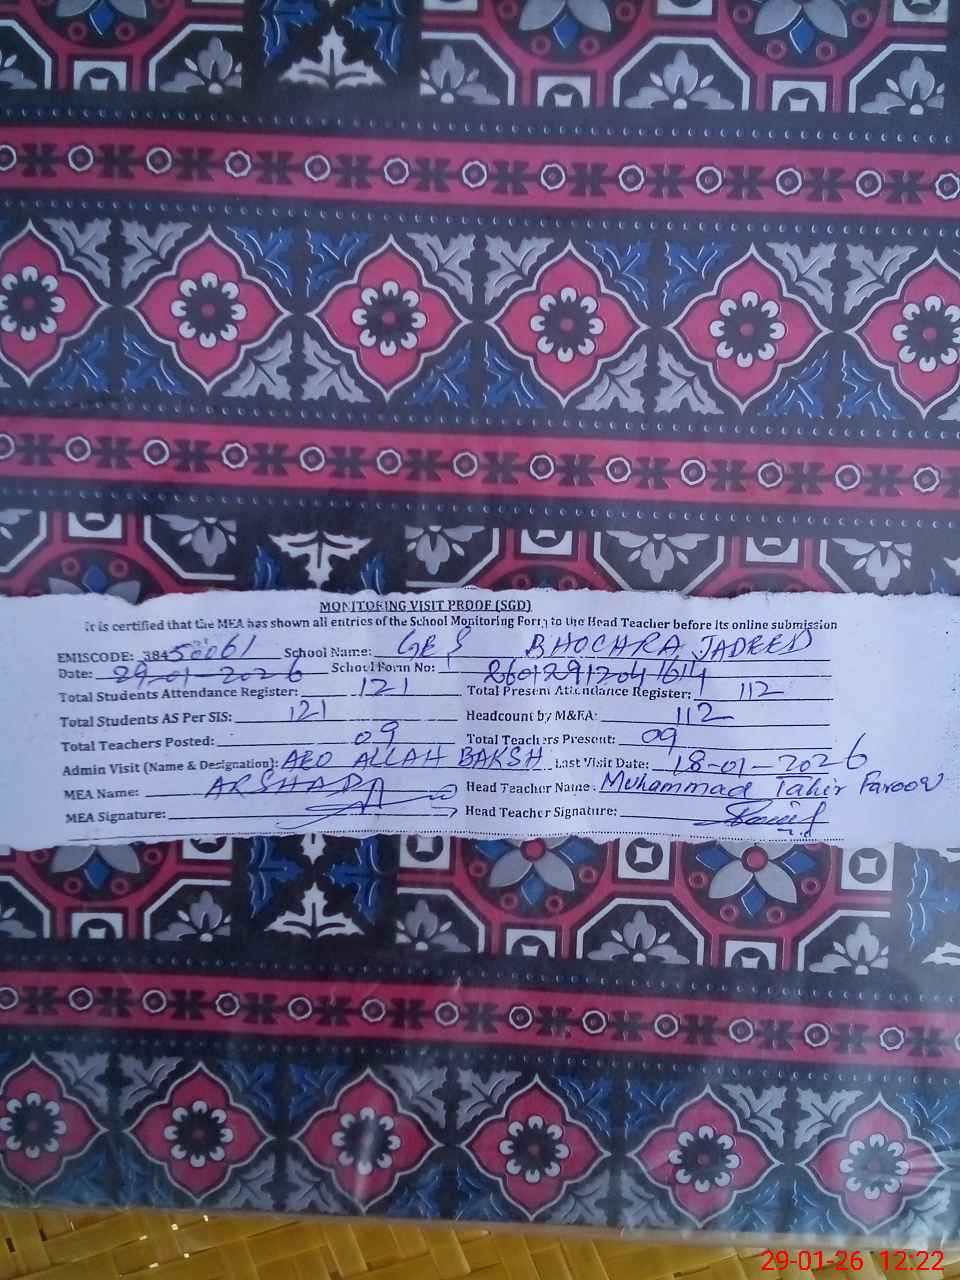 MONITORING VISIT PROOF (SGD)
It is certified that the MEA has shown all entries of the School Monitoring Form to the Head Teacher before its online submission
EMISCODE: 38450061 School Name: GES BHOCHRA JADEED
Date: 29-01-2026 School Form No: 26012912041614
Total Students Attendance Register: 121 Total Present Attendance Register: 112
Total Students AS Per SIS: 121 Headcount by M&EA: 112
Total Teachers Posted: 09 Total Teachers Present: 09
Admin Visit (Name & Designation): AEO ALLAH BAKSH Last Visit Date: 18-01-2026
MEA Name: ARSHAD Head Teacher Name: Muhammad Tahir Farooq
MEA Signature: Head Teacher Signature:
29-01-26 12:22